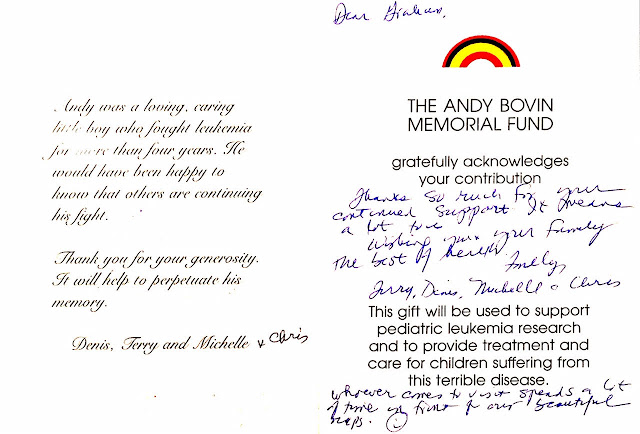 Andy was a loving, caring
little boy who fought leukemia
for more than four years. He
would have been happy to
know that others are continuing
his fight.
Thank you for your generosity.
It will help to perpetuate his
memory.
Denis, Terry and Michelle + Chris
Dear
THE ANDY BOVIN
MEMORIAL FUND
gratefully acknowledges
your contribution
Thanks so much for your
continued support It means
a lot
Wishing your family
The best of health
Terry, Denis, Michelle & Chris
This gift will be used to support
pediatric leukemia research
and to provide treatment and
care for children suffering from
this terrible disease.
whoever comes to visit spends a lot
of time in front of our beautiful
maps.